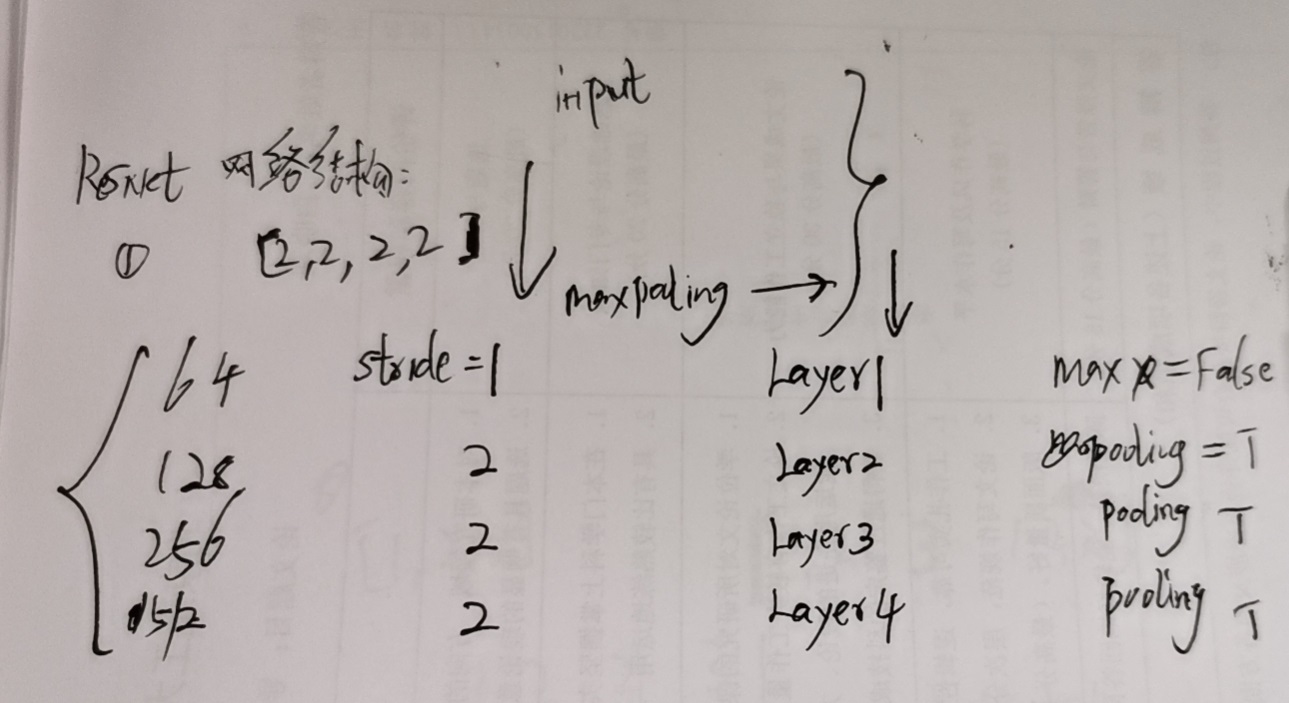 input
Resnet 网络结构:
① [2,2,2,2]
maxpooling →
64 stride=1 Layer1 max=False
128 2 Layer2 pooling=T
256 2 Layer3 pooling T
512 2 Layer4 pooling T